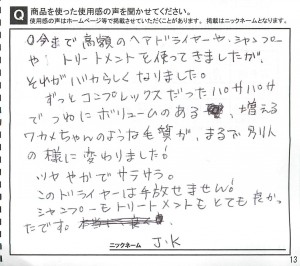 Q 商品を使った使用感の声をお聞かせください。
使用感の声はホームページ等で掲載させていただくことがあります。掲載はニックネームとなります。
今まで高額のヘアドライヤーや、シャンプー
や、トリートメントを使ってきましたが、
それがバカらしくなりました。
ずっとコンプレックスだったパサパサ
でつねにボリュームのある 、増える
ワカメちゃんのような毛質が、まるで別人
の様に変わりました!
ツヤやかでサラサラ。
このドライヤーは手放せません!
シャンプーもトリートメントもとても良か
ったです。
ニックネーム J.K
13